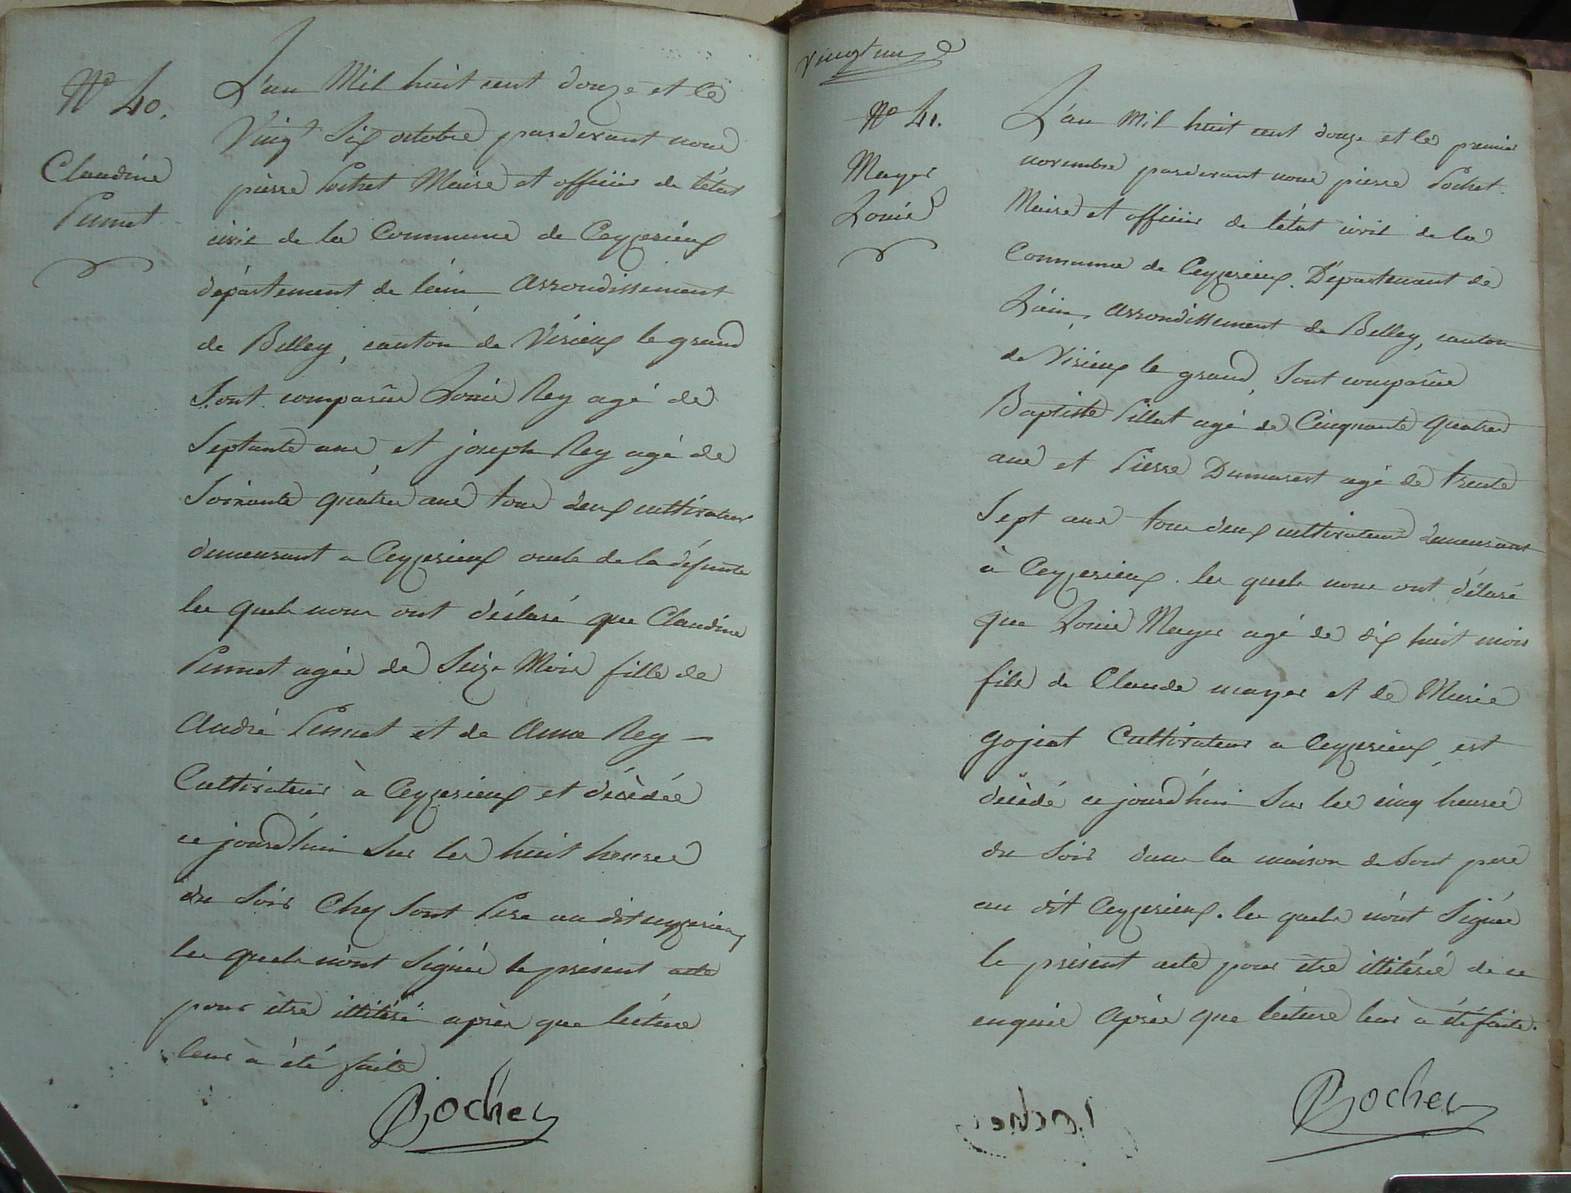 N° 40.
Claudine
Pernet
L'an Mil huit cent douze et le
Vingt Six octobre pardevant nous
pierre Pochet Maire et officier de l'état
civil de la Commune de Ceyzerieux
département de l'ain arrondissement
de Belley, canton de Virieux le grand
Sont comparûe Louis Rey agé de
Septante ans, et joseph Rey agé de
Soixante quatre ans tous deux cultivateurs
demeurant a Ceyzerieux oncle de la défunte
les quels nous ont déclaré que Claudine
Pernet agée de Seize Mois fille de
André Pernet et de Anne Rey
Cultivateur à Ceyzerieux et décèdée
ce jourd'hui Sur les huit heures
du Soir Chez Sont Pere au dit ceyzerieux
les quels n'ont Signée le présent acte
pour être illitéré après que lecture
leur à été faite
Pochet
vingt un
N° 41.
Mayer
Louis
L'an Mil huit cent douze et le premier
novembre pardevant nous pierre Pochet
Maire et officier de l'état civil de la
Commune de Ceyzerieux. Département de
L'ain, arrondissement de Belley, canton
de Virieux le grand, Sont comparûe
Baptiste Pillat agé de Cinquante quatre
ans et Pierre Dumarest agé de trente
Sept ans tous deux cultivateurs demeurant
à Ceyzerieux. les quels nous ont déclaré
que Louis Mayer agé de dix huit mois
fils de Claude mayer et de Marie
gojeat Cultivateur a Ceyzerieux est
décèdé ce jourd'hui Sur les cinq heures
du Soir dans la maison de Sont pere
au dit Ceyzerieux. les quels n'ont Signée
le présent acte pour être illitéré de ce
enquis Après que lecture leur à été faite.
Pochet